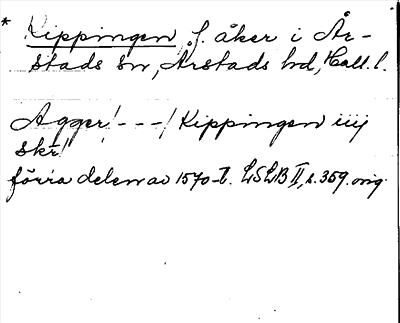 * Kippingen, f. åker i År-
stads sn, Årstads hd, Hall. l.
Agger! - - -! Kippingen iiij
skr!
förra delen av 1570-t. LSLB II, s. 359. orig.